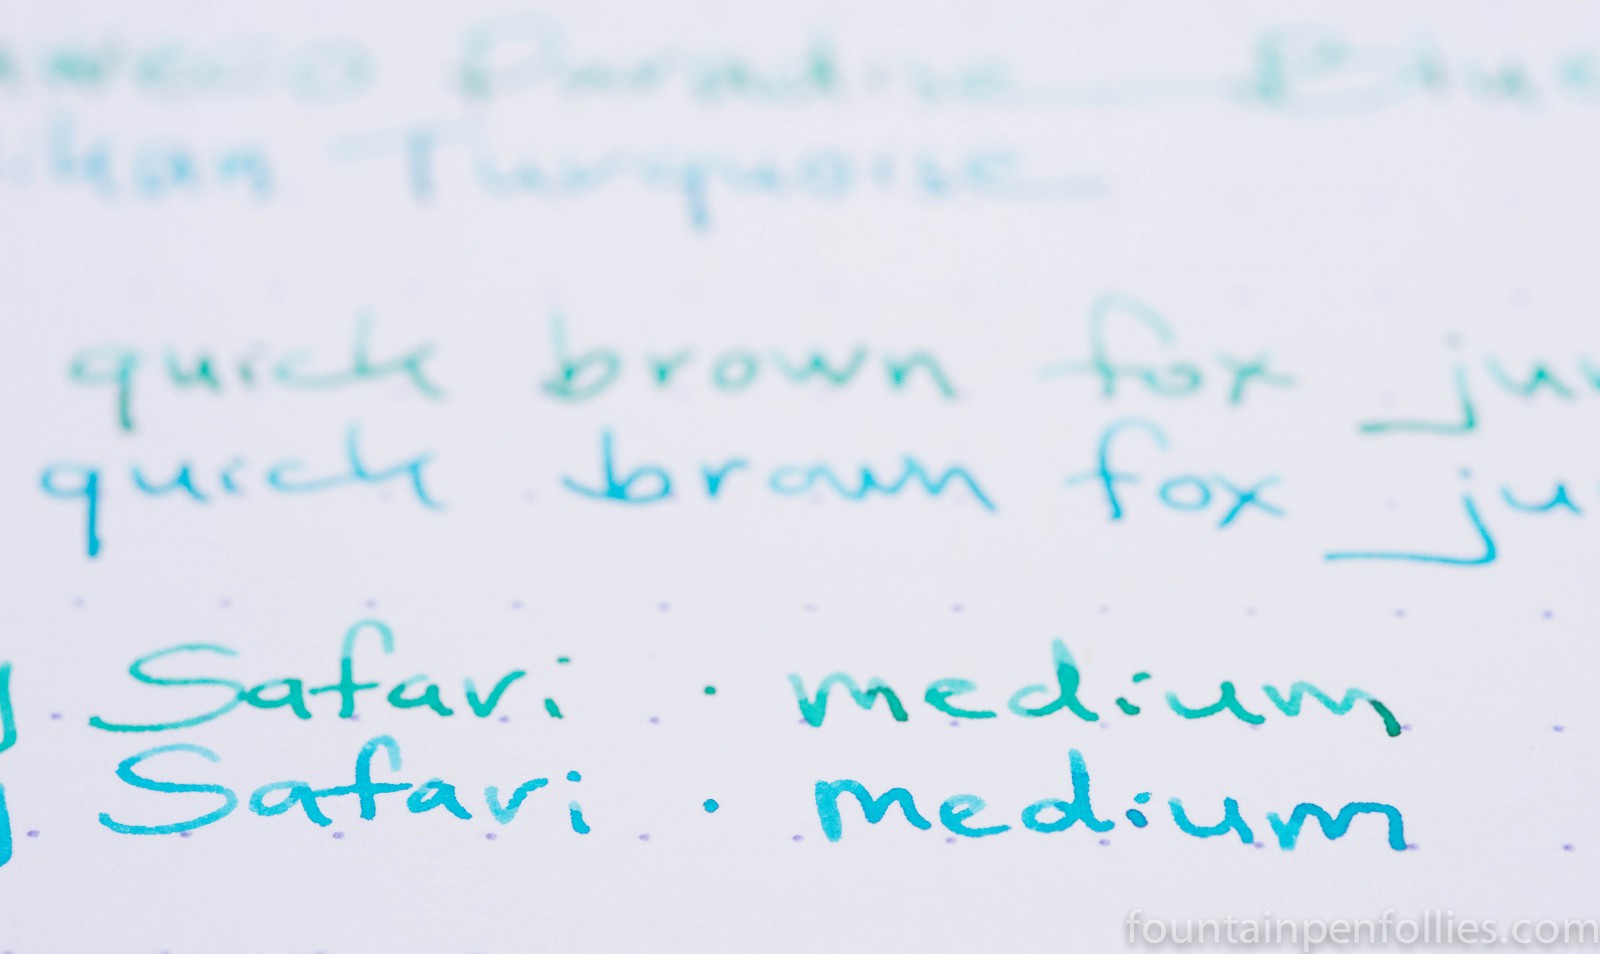 Paradise Blue
Turquoise
quick brown fox
quick brown fox
Safari · medium
Safari · medium
fountainpenfollies.com